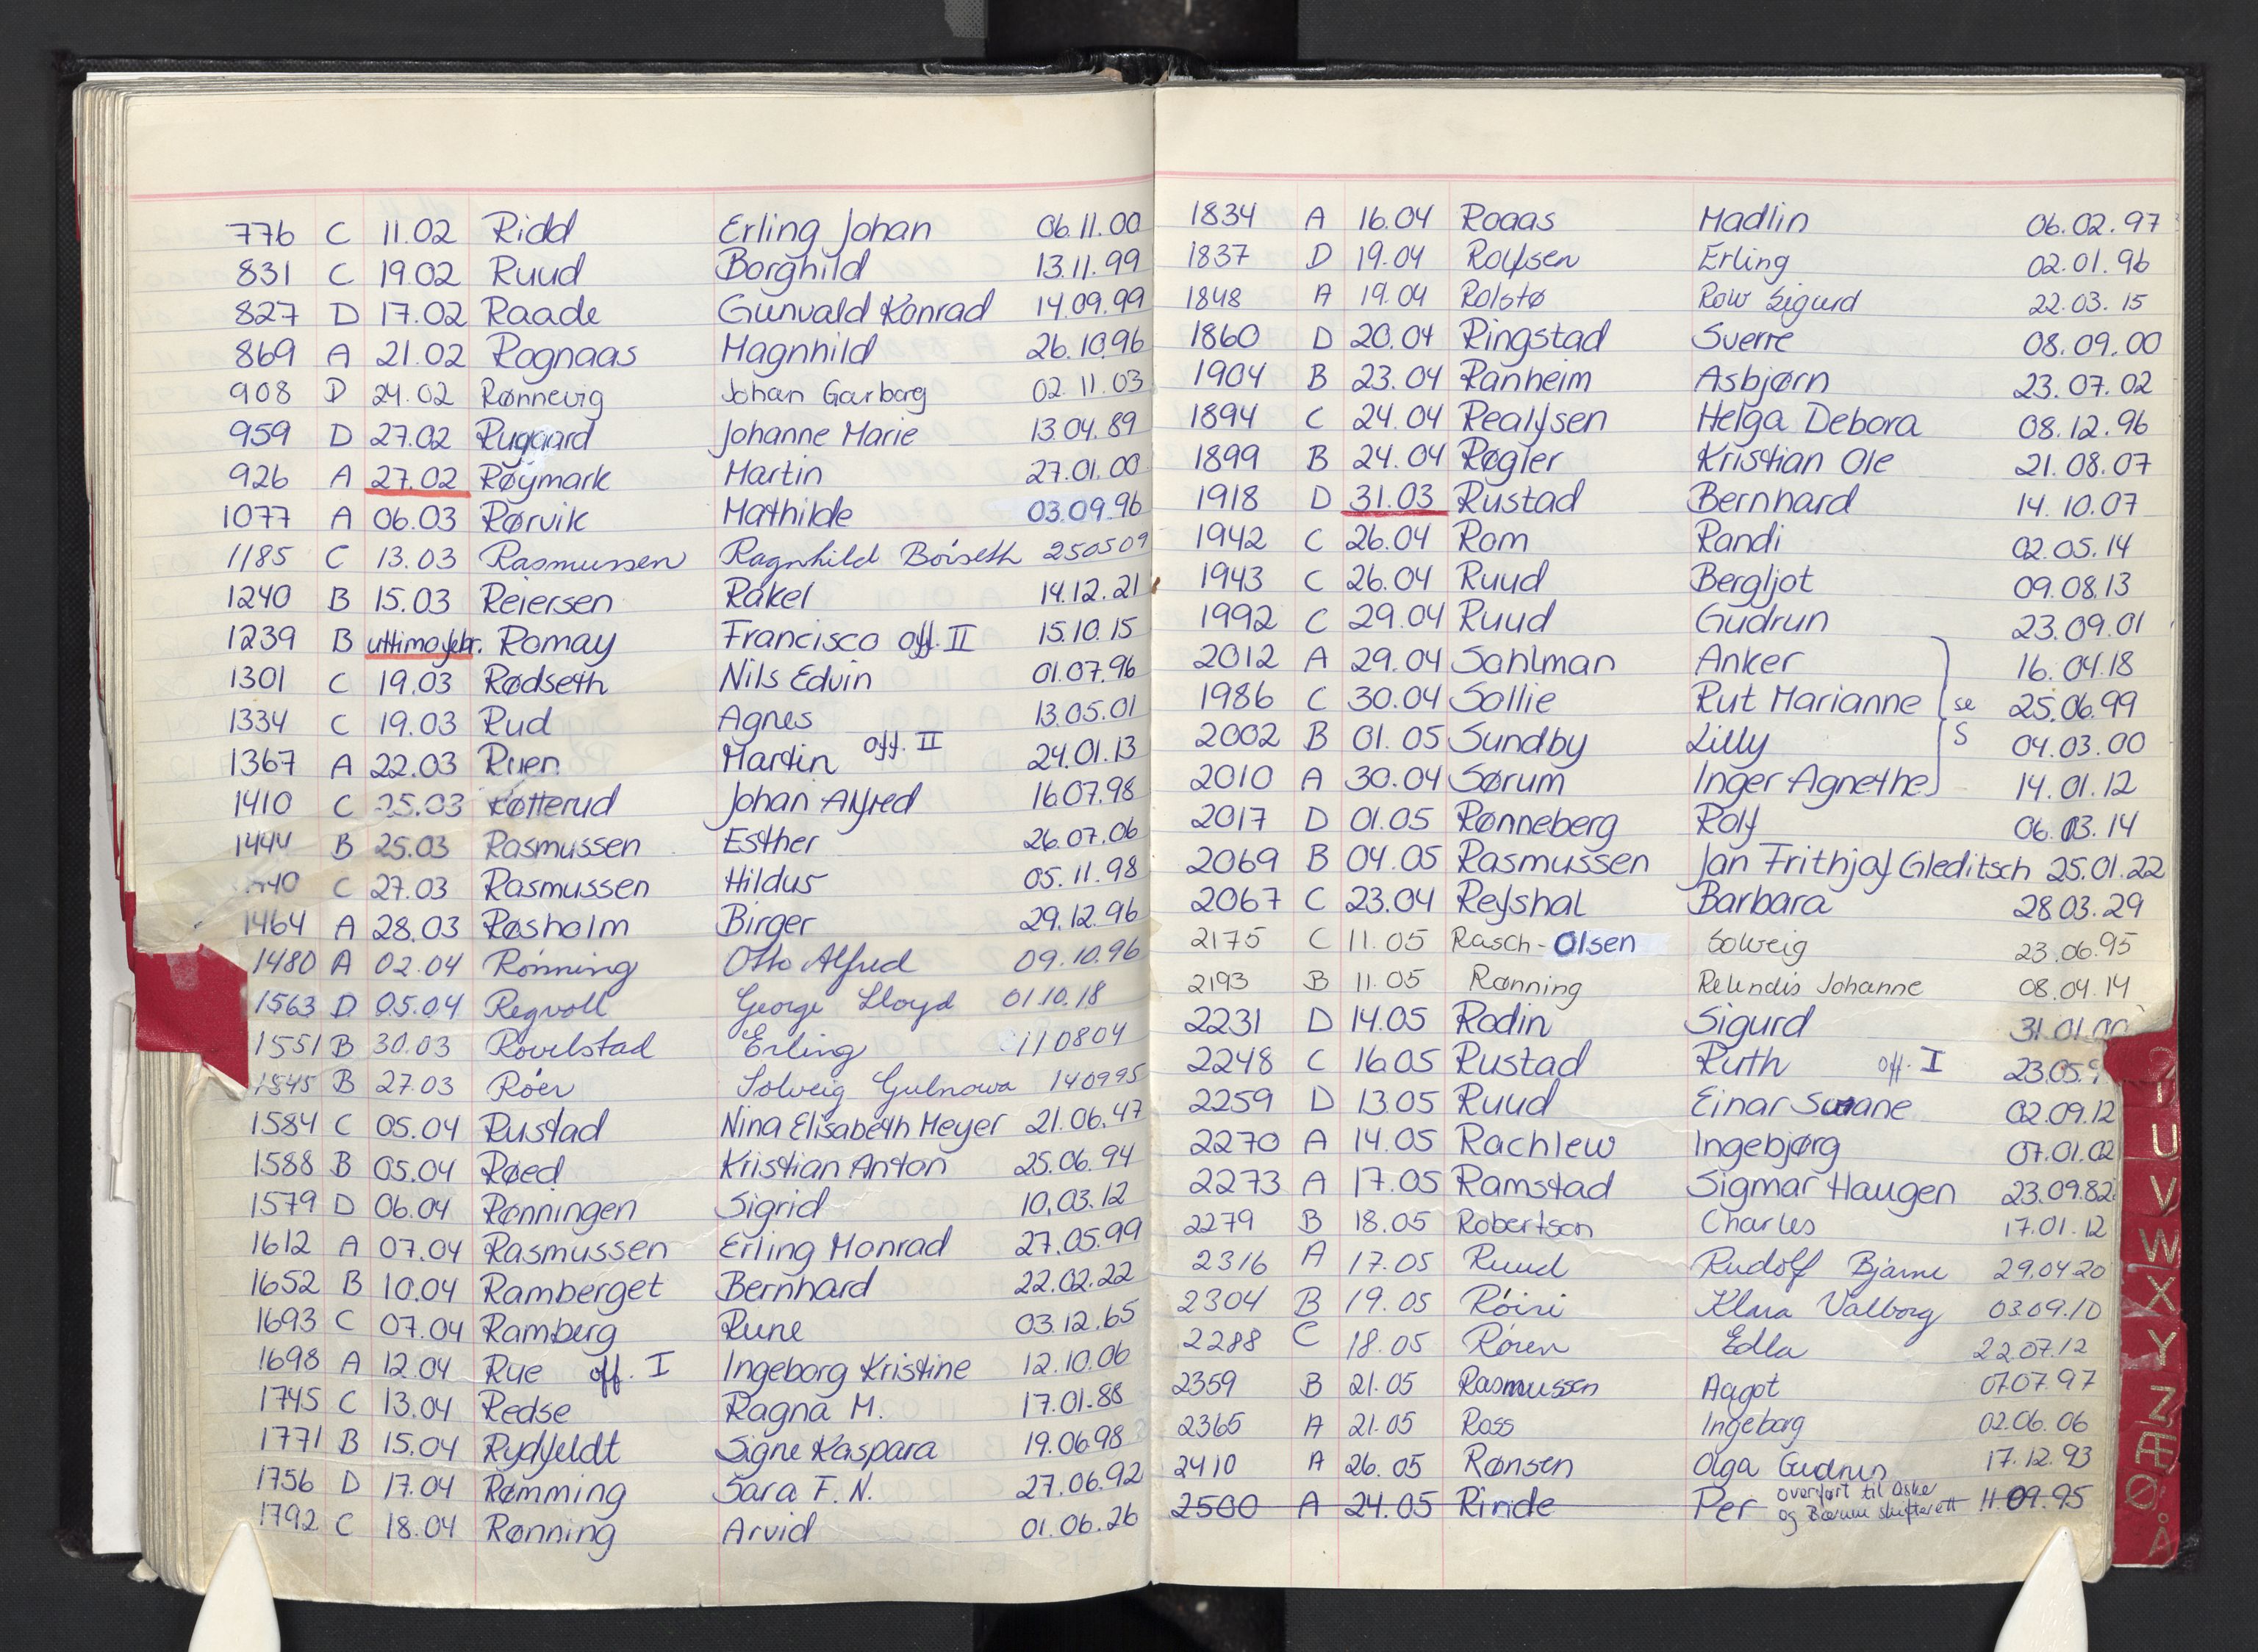 776 C 11.02 Ridd Erling Johan 06.11.00
831 C 19.02 Ruud Borghild 13.11.99
827 D 17.02 Raade Gunvald Konrad 14.09.99
869 A 21.02 Rognaas Magnhild 26.10.96
908 D 24.02 Rønnevig Johan Garborg 02.11.03
959 D 27.02 Rugaard Johanne Marie 13.04.89
926 A 27.02 Røymark Martin 27.01.00
1077 A 06.03 Rørvik Mathilde 03.09.96
1185 C 13.03 Rasmussen Ragnhild Böiseth 250509
1240 B 15.03 Reiersen Rakel 14.12.21
1239 B ultimo febr. Romay Francisco off. II 15.10.15
1301 C 19.03 Rødseth Nils Edvin 01.07.96
1334 C 19.03 Rud Agnes 13.05.01
1367 A 22.03 Ruen Martin off. II 24.01.13
1410 C 25.03 Røtterud Johan Alfred 16.07.98
1444 B 25.03 Rasmussen Esther 26.07.06
40 C 27.03 Rasmussen Hildus 05.11.98
1464 A 28.03 Røsholm Birger 29.12.96
1480 A 02.04 Rönning Otto Alfred 09.10.96
1563 D 05.04 Regvoll George Lloyd 01.10.18
1551 B 30.03 Rovelstad Erling 110804
1545 B 27.03 Röer Solveig Gulnowa 140995
1584 C 05.04 Rustad Nina Elisabeth Meyer 21.06.47
1588 B 05.04 Røed Kristian Anton 25.06.94
1579 D 06.04 Rønningen Sigrid 10.03.12
1612 A 07.04 Rasmussen Erling Monrad 27.05.99
1652 B 10.04 Ramberget Bernhard 22.02.22
1693 C 07.04 Ramberg Rune 03.12.65
1698 A 12.04 Rue off. I Ingeborg Kristine 12.10.06
1745 C 13.04 Redse Ragna M. 17.01.88
1771 B 15.04 Rydfeldt Signe Kaspara 19.06.98
1756 D 17.04 Rømming Sara F. N. 27.06.92
1792 C 18.04 Rønning Arvid 01.06.26
1834 A 16.04 Roaas Madlin 06.02.97
1837 D 19.04 Rolfsen Erling 02.01.96
1848 A 19.04 Rolstø Rolv Sigurd 22.03.15
1860 D 20.04 Ringstad Sverre 08.09.00
1904 B 23.04 Ranheim Asbjørn 23.07.02
1894 C 24.04 Realfsen Helga Debora 08.12.96
1899 B 24.04 Røgler Kristian Ole 21.08.07
1918 D 31.03 Rustad Bernhard 14.10.07
1942 C 26.04 Rom Randi 02.05.14
1943 C 26.04 Ruud Bergljot 09.08.13
1992 C 29.04 Ruud Gudrun 23.09.01
2012 A 29.04 Sahlman Anker 16.04.18
1986 C 30.04 Sollie Rut Marianne se 25.06.99
2002 B 01.05 Sundby Lilly S 04.03.00
2010 A 30.04 Sørum Inger Agnethe 14.01.12
2017 D 01.05 Rønneberg Rolf 06.03.14
2069 B 04.05 Rasmussen Jan Frithjof Gleditsch 25.01.22
2067 C 23.04 Refshal Barbara 28.03.29
2175 C 11.05 Rasch-Olsen Solveig 23.06.95
2193 B 11.05 Rønning Relindis Johanne 08.04.14
2231 D 14.05 Rodin Sigurd 31.01.00
2248 C 16.05 Rustad Ruth off. I 23.05.
2259 D 13.05 Ruud Einar Svane 02.09.12
2270 A 14.05 Rachlew Ingebjørg 07.01.02
2273 A 17.05 Ramstad Sigmar Haugen 23.09.82
2279 B 18.05 Robertson Charles 17.01.12
2316 A 17.05 Ruud Rudolf Bjarne 29.04.20
2304 B 19.05 Röisi Klara Valborg 03.09.10
2288 C 18.05 Rören Edla 22.07.12
2359 B 21.05 Rasmussen Aagot 07.07.97
2365 A 21.05 Ross Ingeborg 02.06.06
2410 A 26.05 Rønsen Olga Gudrun 17.12.93
2500 A 24.05 Rinde Per overført til Asker 11.09.95
og Bærum skifterett
U
V
W
X
Y
Z
Æ
Ø
Å